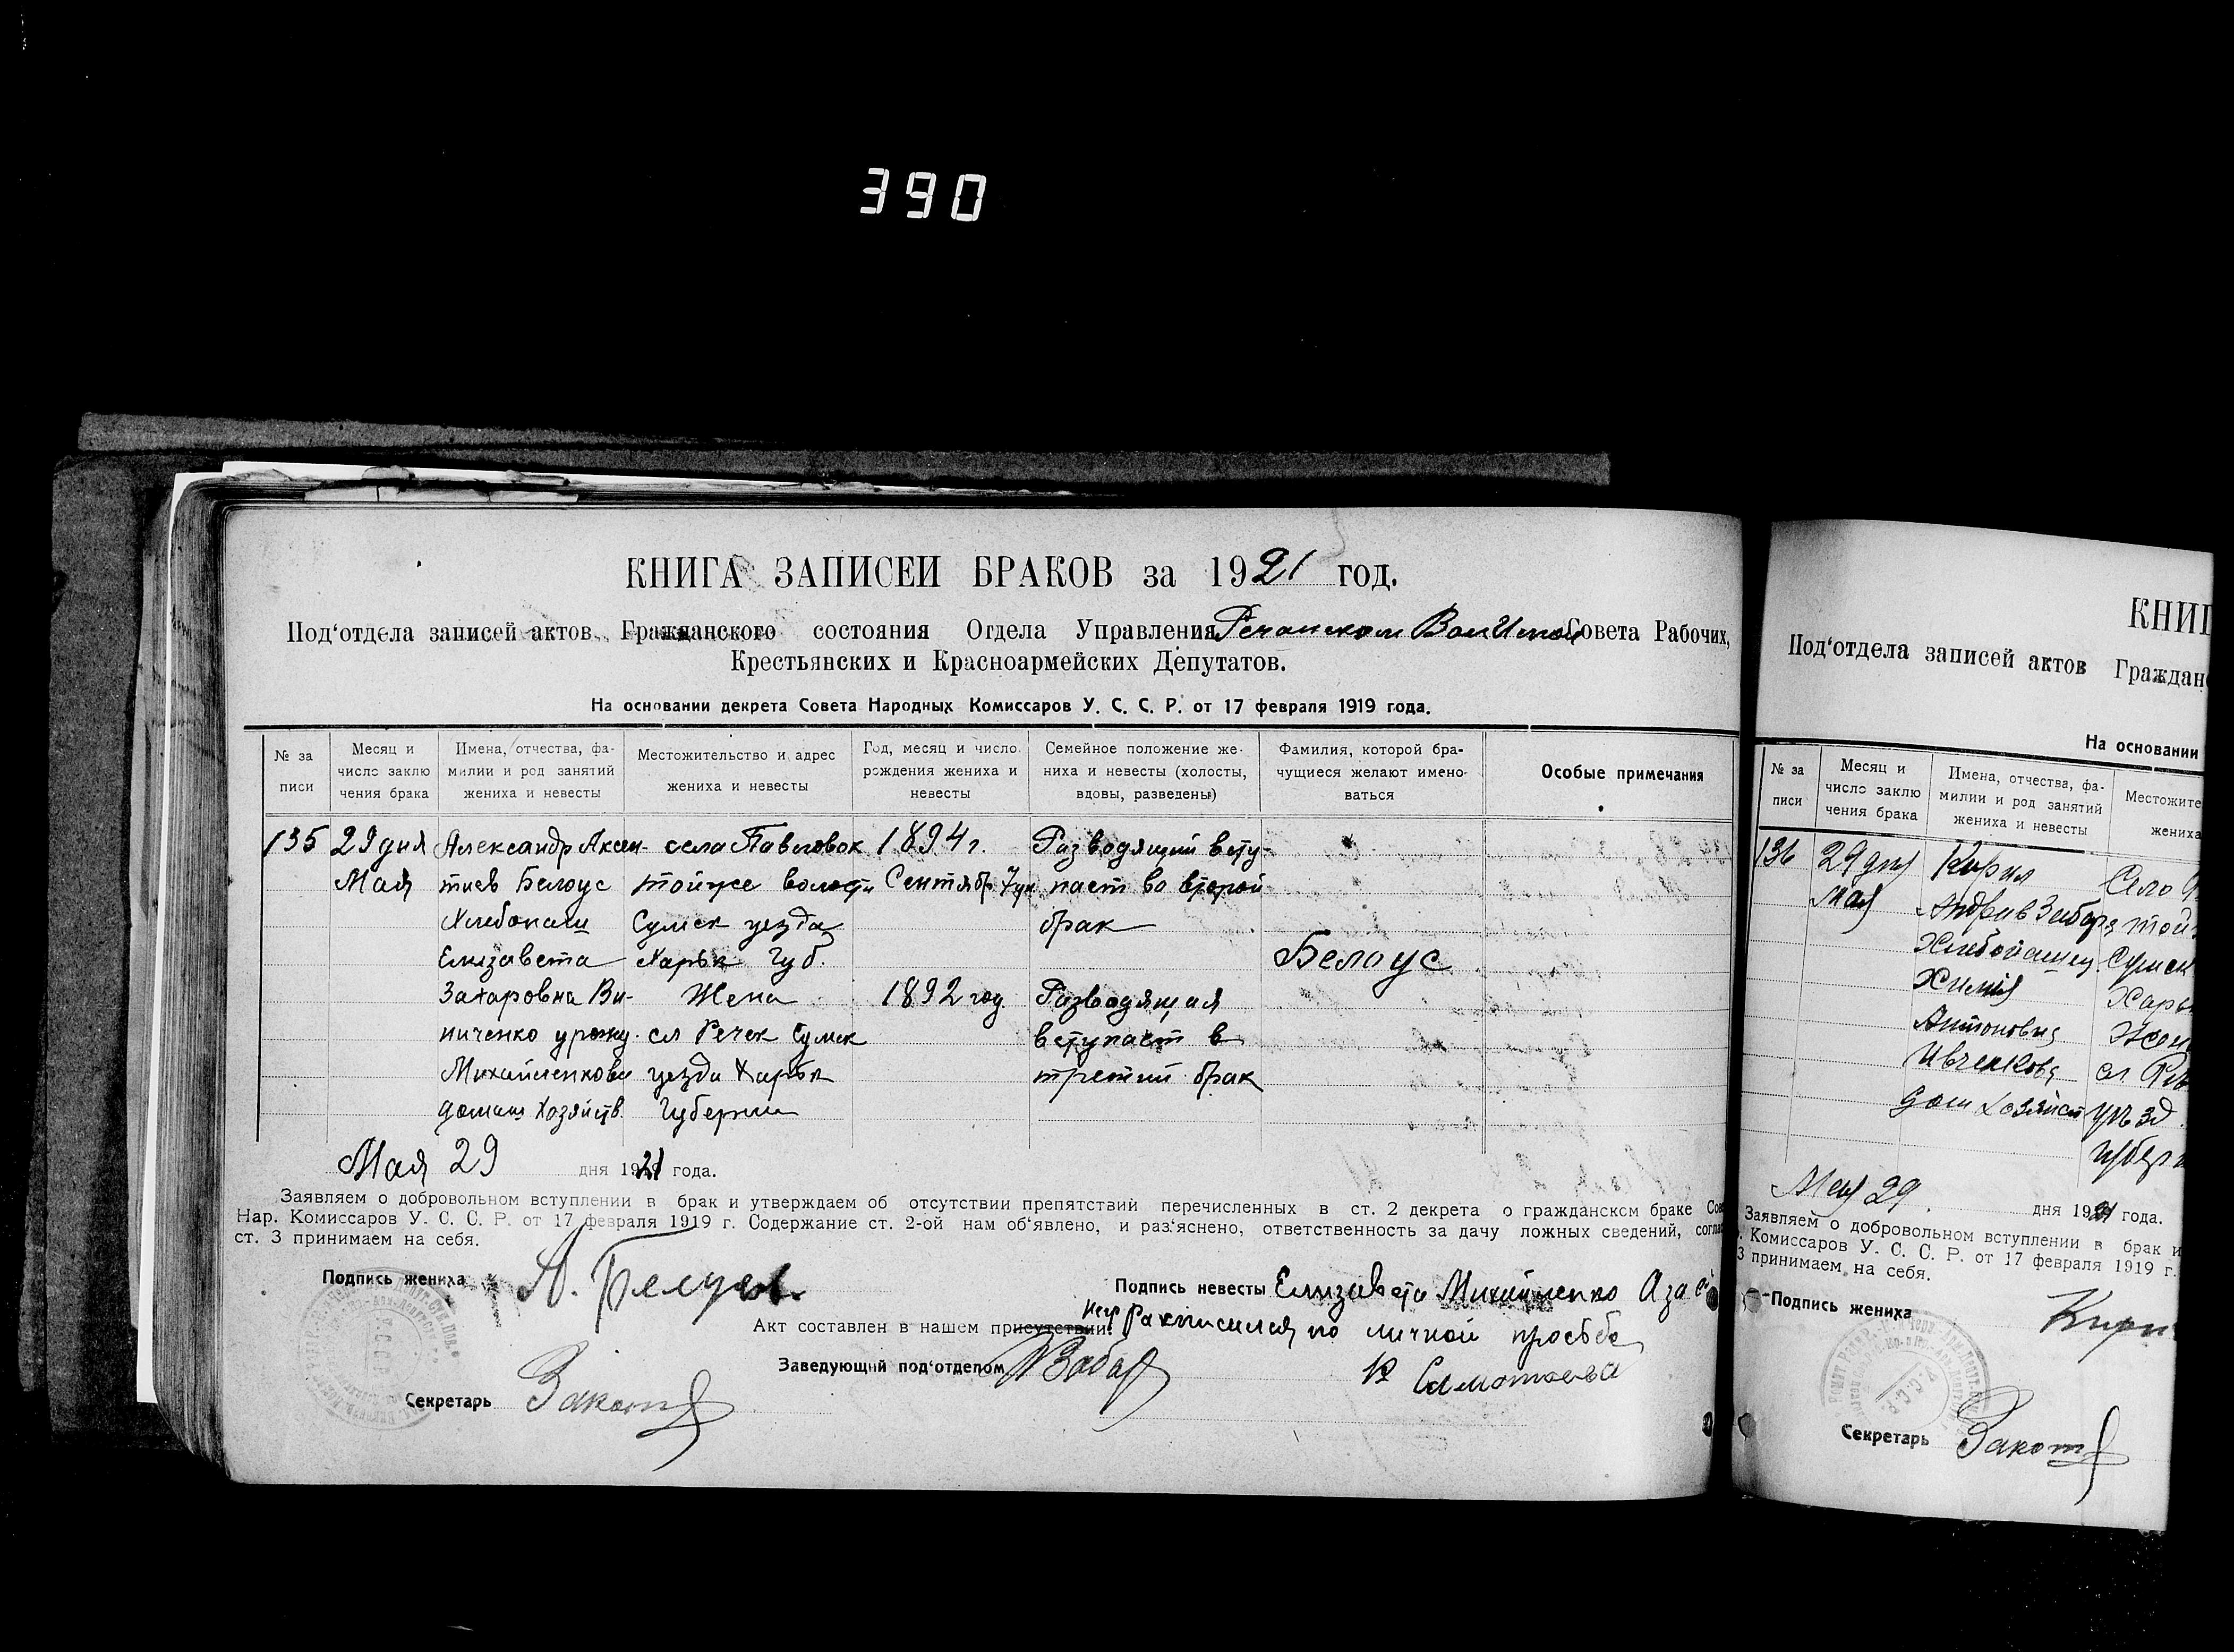 390
КНИГА ЗАПИСЕЙ БРАКОВ за 1921 год.
Под'отдела записей актов Гражданского состояния Отдела Управления Речанском Совета Рабочих,
Крестьянских и Красноармейских Депутатов.
На основании декрета Совета Народных Комиссаров У. С. С. Р. от 17 февраля 1919 года.
№ за писи
Месяц и число заклю чения брака
Имена, отчества, фа- милии и род занятий жениха и невесты
Местожительство и адрес жениха и невесты
Год, месяц и число рождения жениха и невесты
Семейное положение же- ниха и невесты (холосты, вдовы, разведены)
Фамилия, которой бра- чущиеся желают имено- ваться
Особые примечания
135 29 дня Александр Аксен- села Павловок 1894 г. Разводящий всту-
Мая тиев Белоус тойже волости Сентябр 7 дн. пает во второй
Хлебопаш Сумск уезда брак
Елизавета Харьк Губ. Белоус
Захаровна Ви- Жена 1892 год Разводящая
ниченко урожд. сл Речек Сумск вступает в
Михайленкова уезда Харьк третий брак
домаш хозяйств. Губернии
Мая 29 дня 1921 года.
Заявляем о добровольном вступлении в брак и утверждаем об отсутствии препятствий перечисленных в ст. 2 декрета о гражданском браке Сов
Нар. Комиссаров У. С. С. Р. от 17 февраля 1919 г. Содержание ст. 2-ой нам об'явлено, и раз'яснено, ответственность за дачу ложных сведений, соглас
ст. 3 принимаем на себя.
Подпись жениха А. Белоус
Подпись невесты Елизавета Михайленко А за
Акт составлен в нашем присутствии: по личной просьбе
Заведующий под'отделом
Секретарь
КНИГ
Под'отдела записей актов Гражданс
На основании
№ за писи
Месяц и число заклю чения брака
Имена, отчества, фа- милии и род занятий жениха и невесты
Местожите жениха
136 29 дня Кирил Село
Мая
Хлебопашец Сумск
Харьк
Антоновна Жена
Ивченкова сл
дом хозяйст уезд
Губер
Мая 29 дня 1921 года.
Заявляем о добровольном вступлении в брак и
. Комиссаров У. С. С. Р. от 17 февраля 1919 г.
3 принимаем на себя.
Подпись жениха Кири
Секретарь